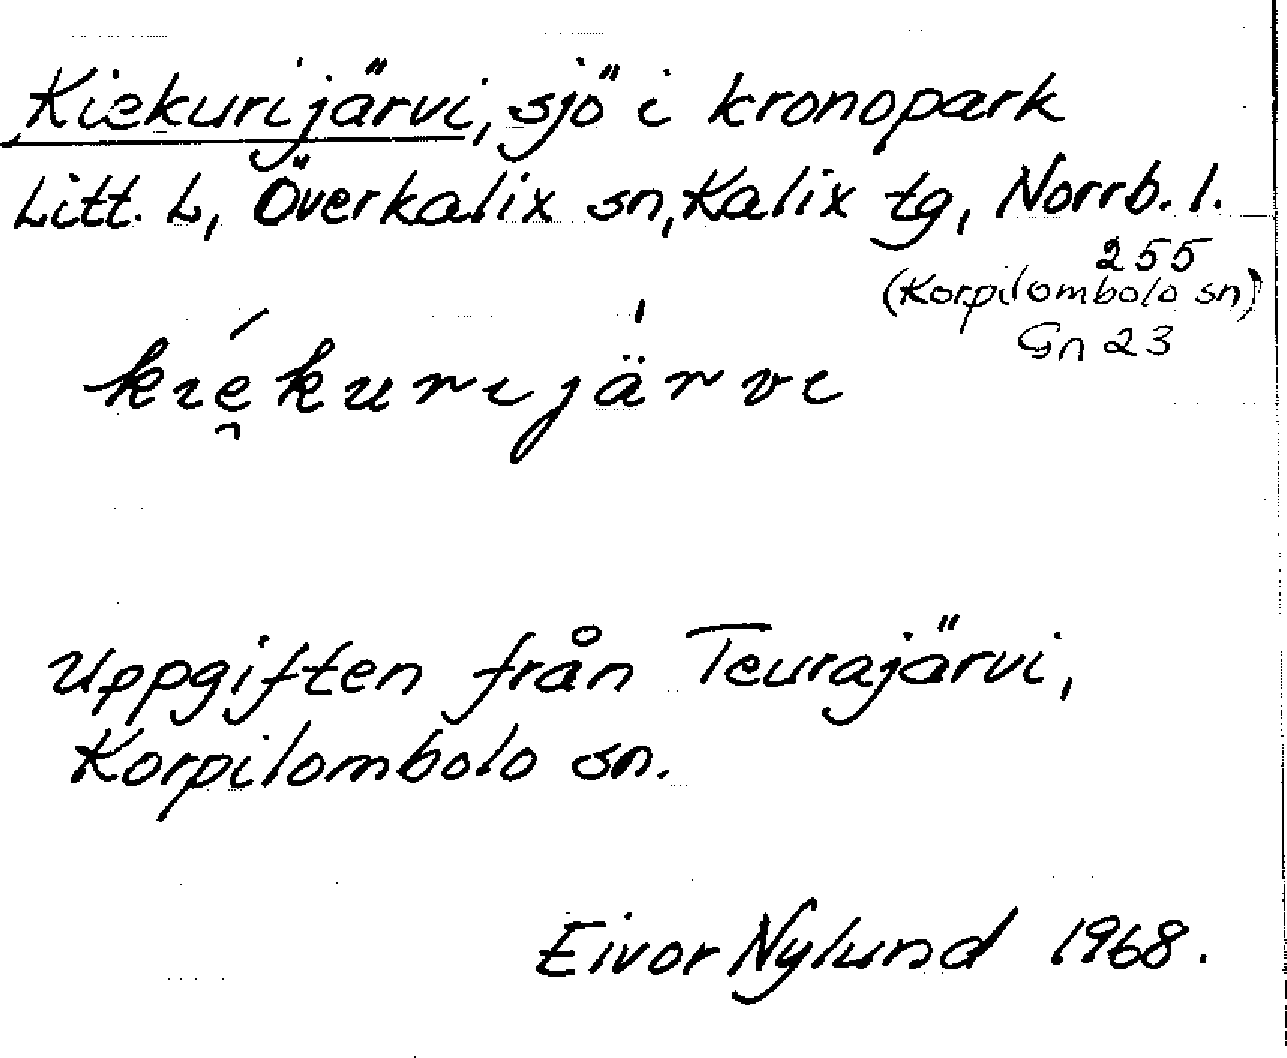 Kiekurijärvi, sjö i kronopark
Litt. L, Överkalix sn, Kalix tg, Norrb. l.
255
(Korpilombolo sn)
Gn 23
kiekurijärvi
Uppgiften från Teurajärvi,
Korpilombolo sn.
Eivor Nylund 1968.